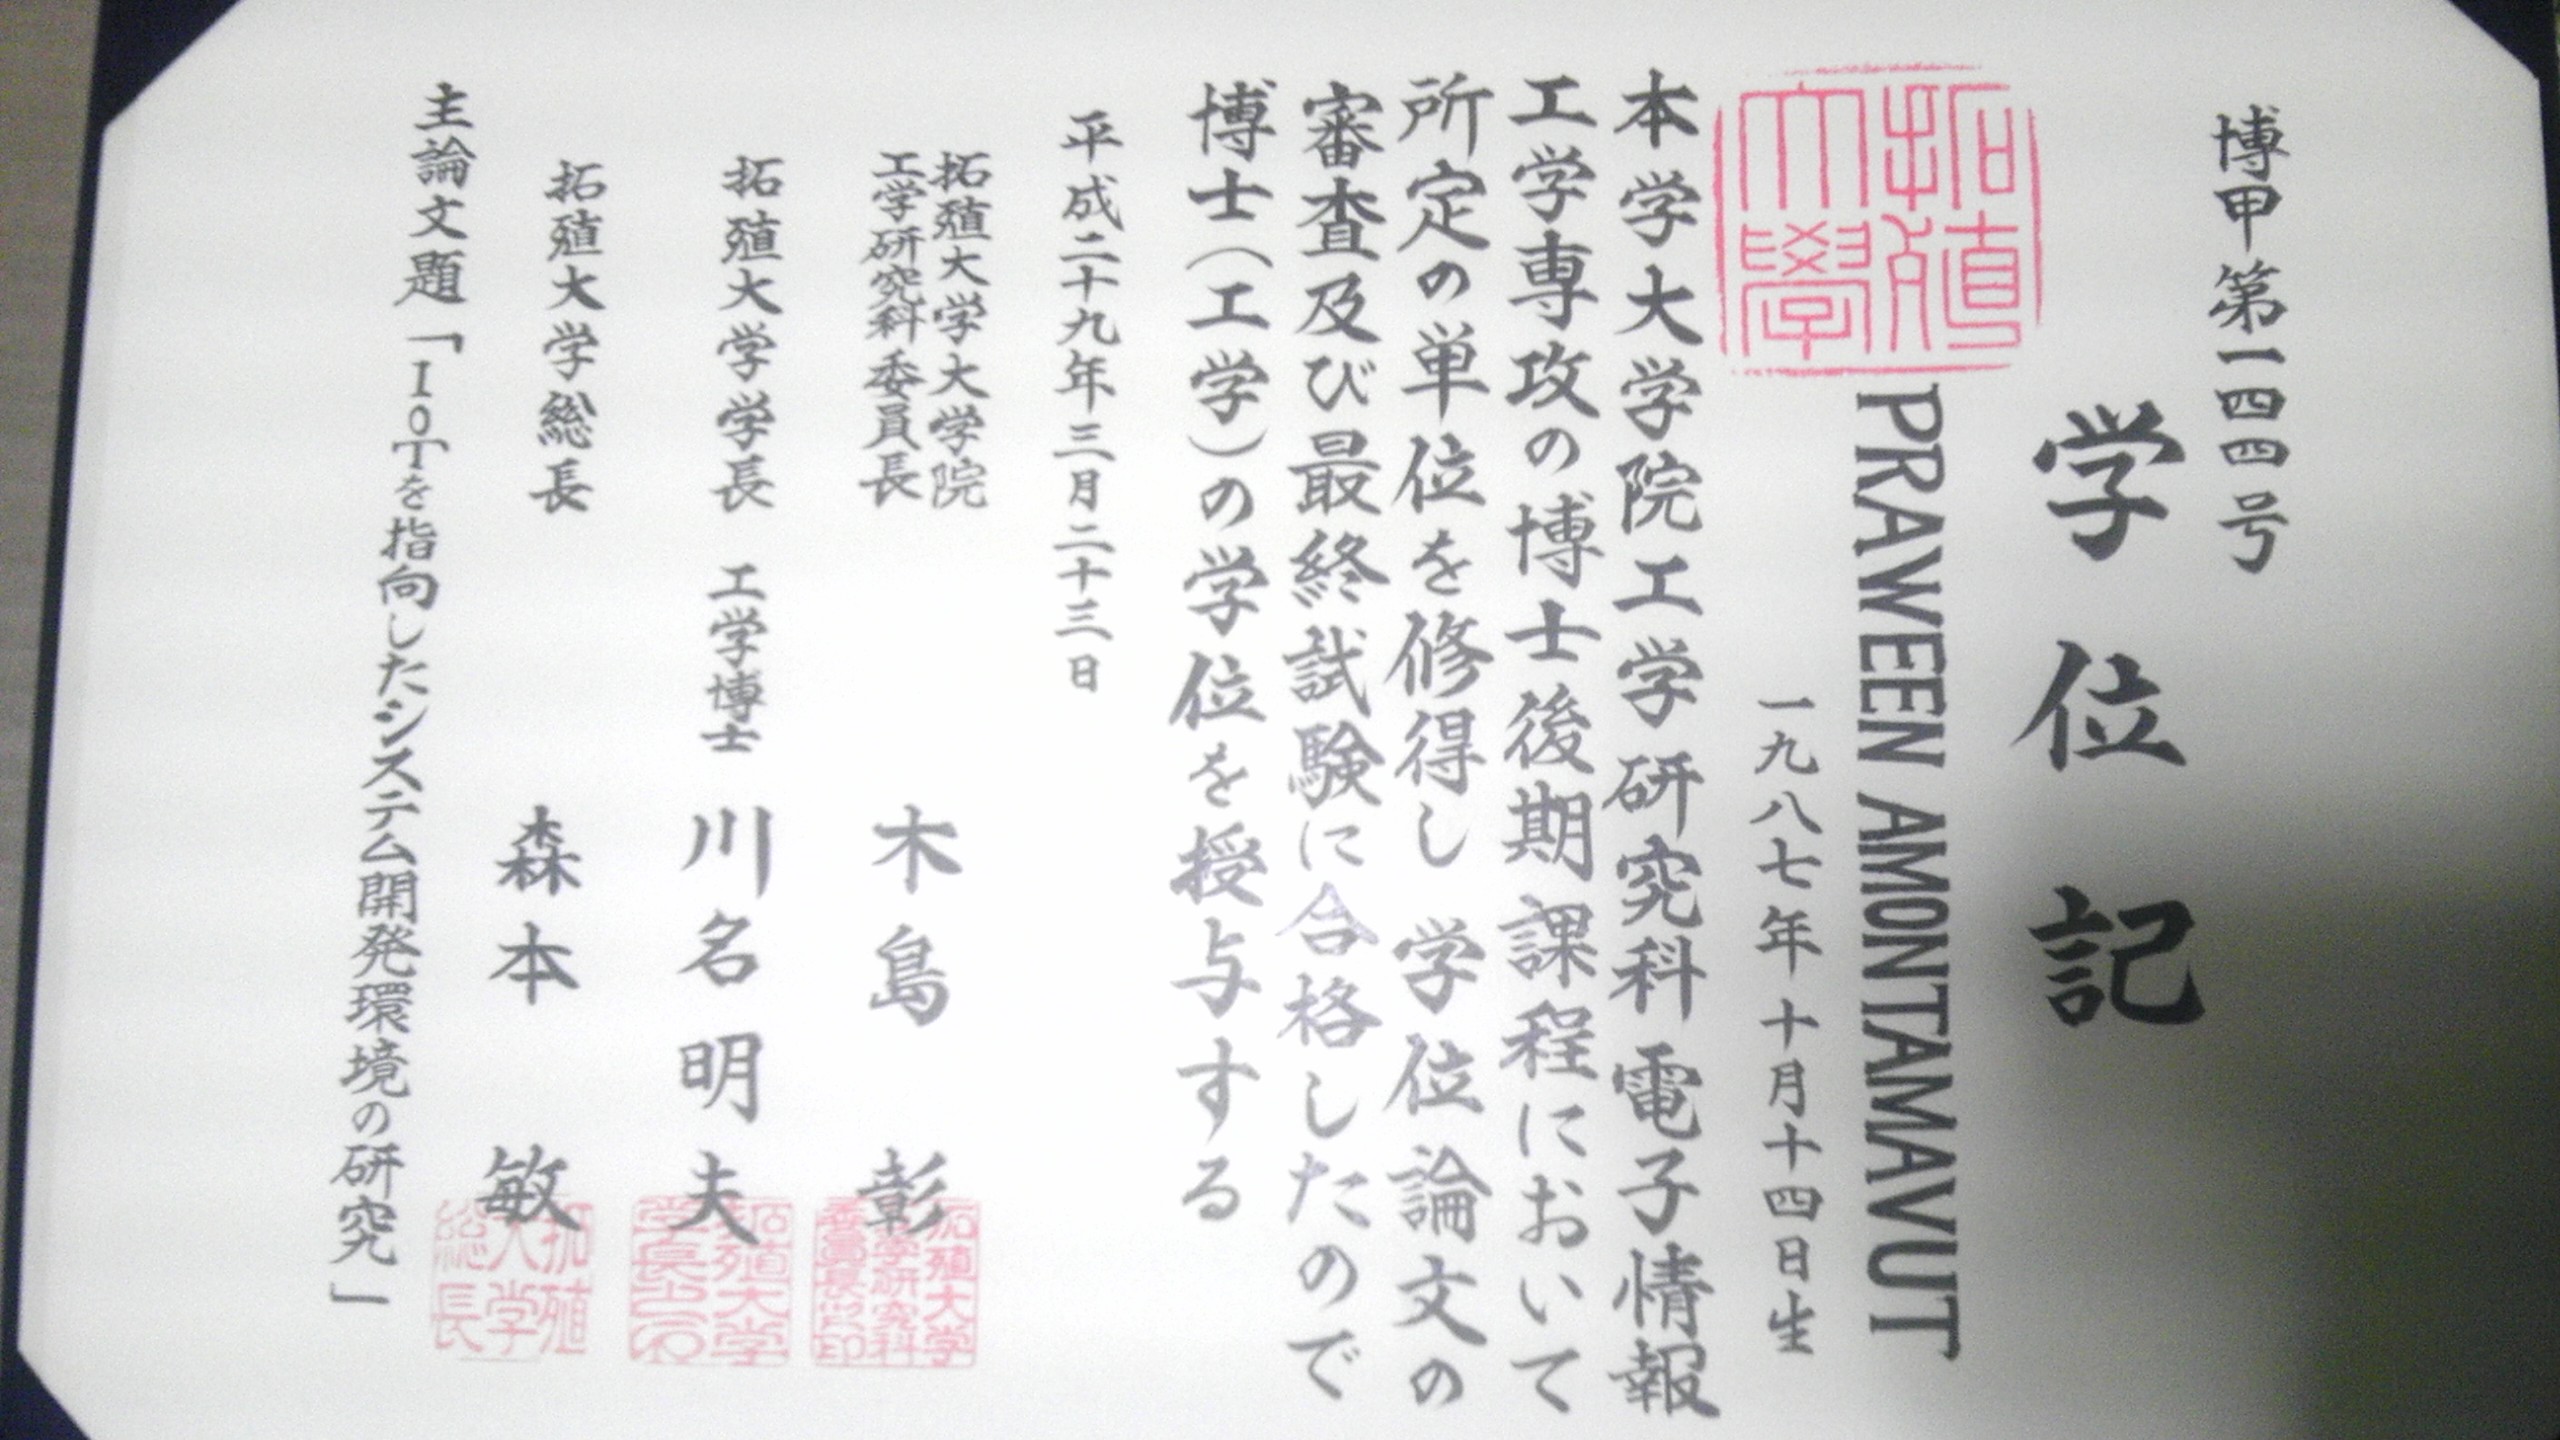 博甲第一四四号
学位記
拓殖大學
PRAWEEN AMONTAMAVUT
一九八七年十月十四日生
本学大学院工学研究科電子情報
工学専攻の博士後期課程において
所定の単位を修得し学位論文の
審査及び最終試験に合格したので
博士（工学）の学位を授与する
平成二十九年三月二十三日
拓殖大学大学院
工学研究科委員長 木島 彰
拓殖大学大学
工学研究科
委員長之印
拓殖大学学長 工学博士 川名明夫
拓殖大学
学長之印
拓殖大学総長 森本 敏
拓殖
大学
総長
主論文題「IoTを指向したシステム開発環境の研究」